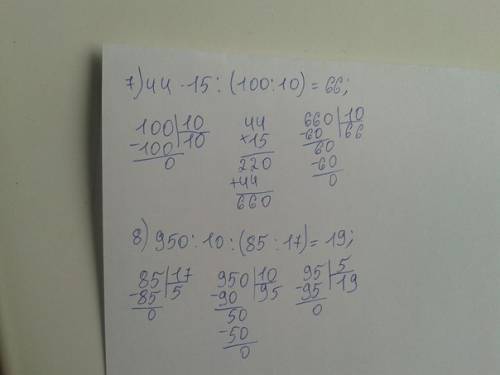 7) 44 · 15 : (100 : 10) = 66;
100 | 10
-100 | 10
0
44
×15
220
+44
660
660 | 10
-60 | 66
60
-60
0
8) 950 : 10 : (85 : 17) = 19;
85 | 17
-85 | 5
0
950 | 10
-90 | 95
50
-50
0
95 | 5
-95 | 19
0